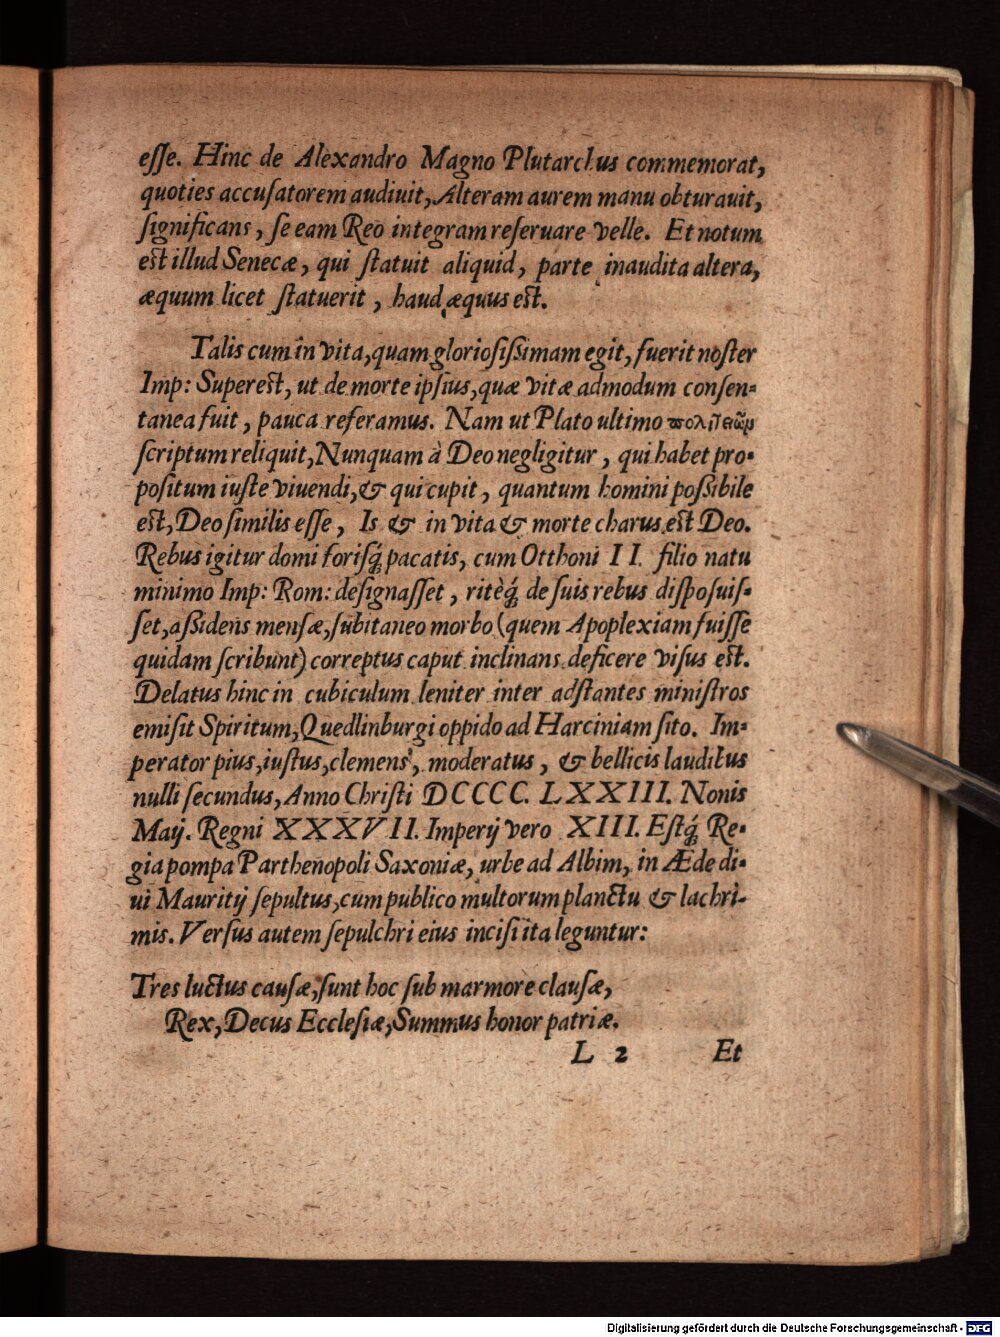 eſſe. Hinc de Alexandro Magno Plutarchus commemorat,
quoties accuſatorem audiuit, Alteram aurem manu obturauit,
ſignificans, ſe eam Reo integram reſeruare velle. Et notum
est illud Senecæ, qui ſtatuit aliquid, parte inaudita altera,
æquum licet ſtatuerit, haud æquus est.
Talis cum in vita, quam glorioſiſsimam egit, fuerit noſter
Imp: Superest, ut de morte ipſius, quæ vitæ admodum conſen-
tanea fuit, pauca referamus. Nam ut Plato ultimo πολιτειῶν
ſcriptum reliquit, Nunquam à Deo negligitur, qui habet pro-
poſitum iuſte viuendi, & qui cupit, quantum homini poſsibile
est, Deo ſimilis eſſe, Is & in vita & morte charus est Deo.
Rebus igitur domi foriſq́; pacatis, cum Otthoni II. filio natu
minimo Imp: Rom: deſignaſſet, ritèq́; de ſuis rebus diſpoſuiſ-
ſet, aſsidens menſæ, ſubitaneo morbo (quem Apoplexiam fuiſſe
quidam ſcribunt) correptus caput inclinans deficere viſus est.
Delatus hinc in cubiculum leniter inter adſtantes miniſtros
emiſit Spiritum, Quedlinburgi oppido ad Harciniam ſito. Im-
perator pius, iuſtus, clemens, moderatus, & bellicis laudibus
nulli ſecundus, Anno Chriſti DCCCC. LXXIII. Nonis
Maij. Regni XXXVII. Imperij vero XIII. Eſtq́; Re-
gia pompa Parthenopoli Saxoniæ, urbe ad Albim, in Æde di-
ui Mauritij ſepultus, cum publico multorum planctu & lachri-
mis. Verſus autem ſepulchri eius inciſi ita leguntur:
Tres luctus cauſæ, ſunt hoc ſub marmore clauſæ,
Rex, Decus Eccleſiæ, Summus honor patriæ.
L 2 Et
Digitalisierung gefördert durch die Deutsche Forschungsgemeinschaft - DFG